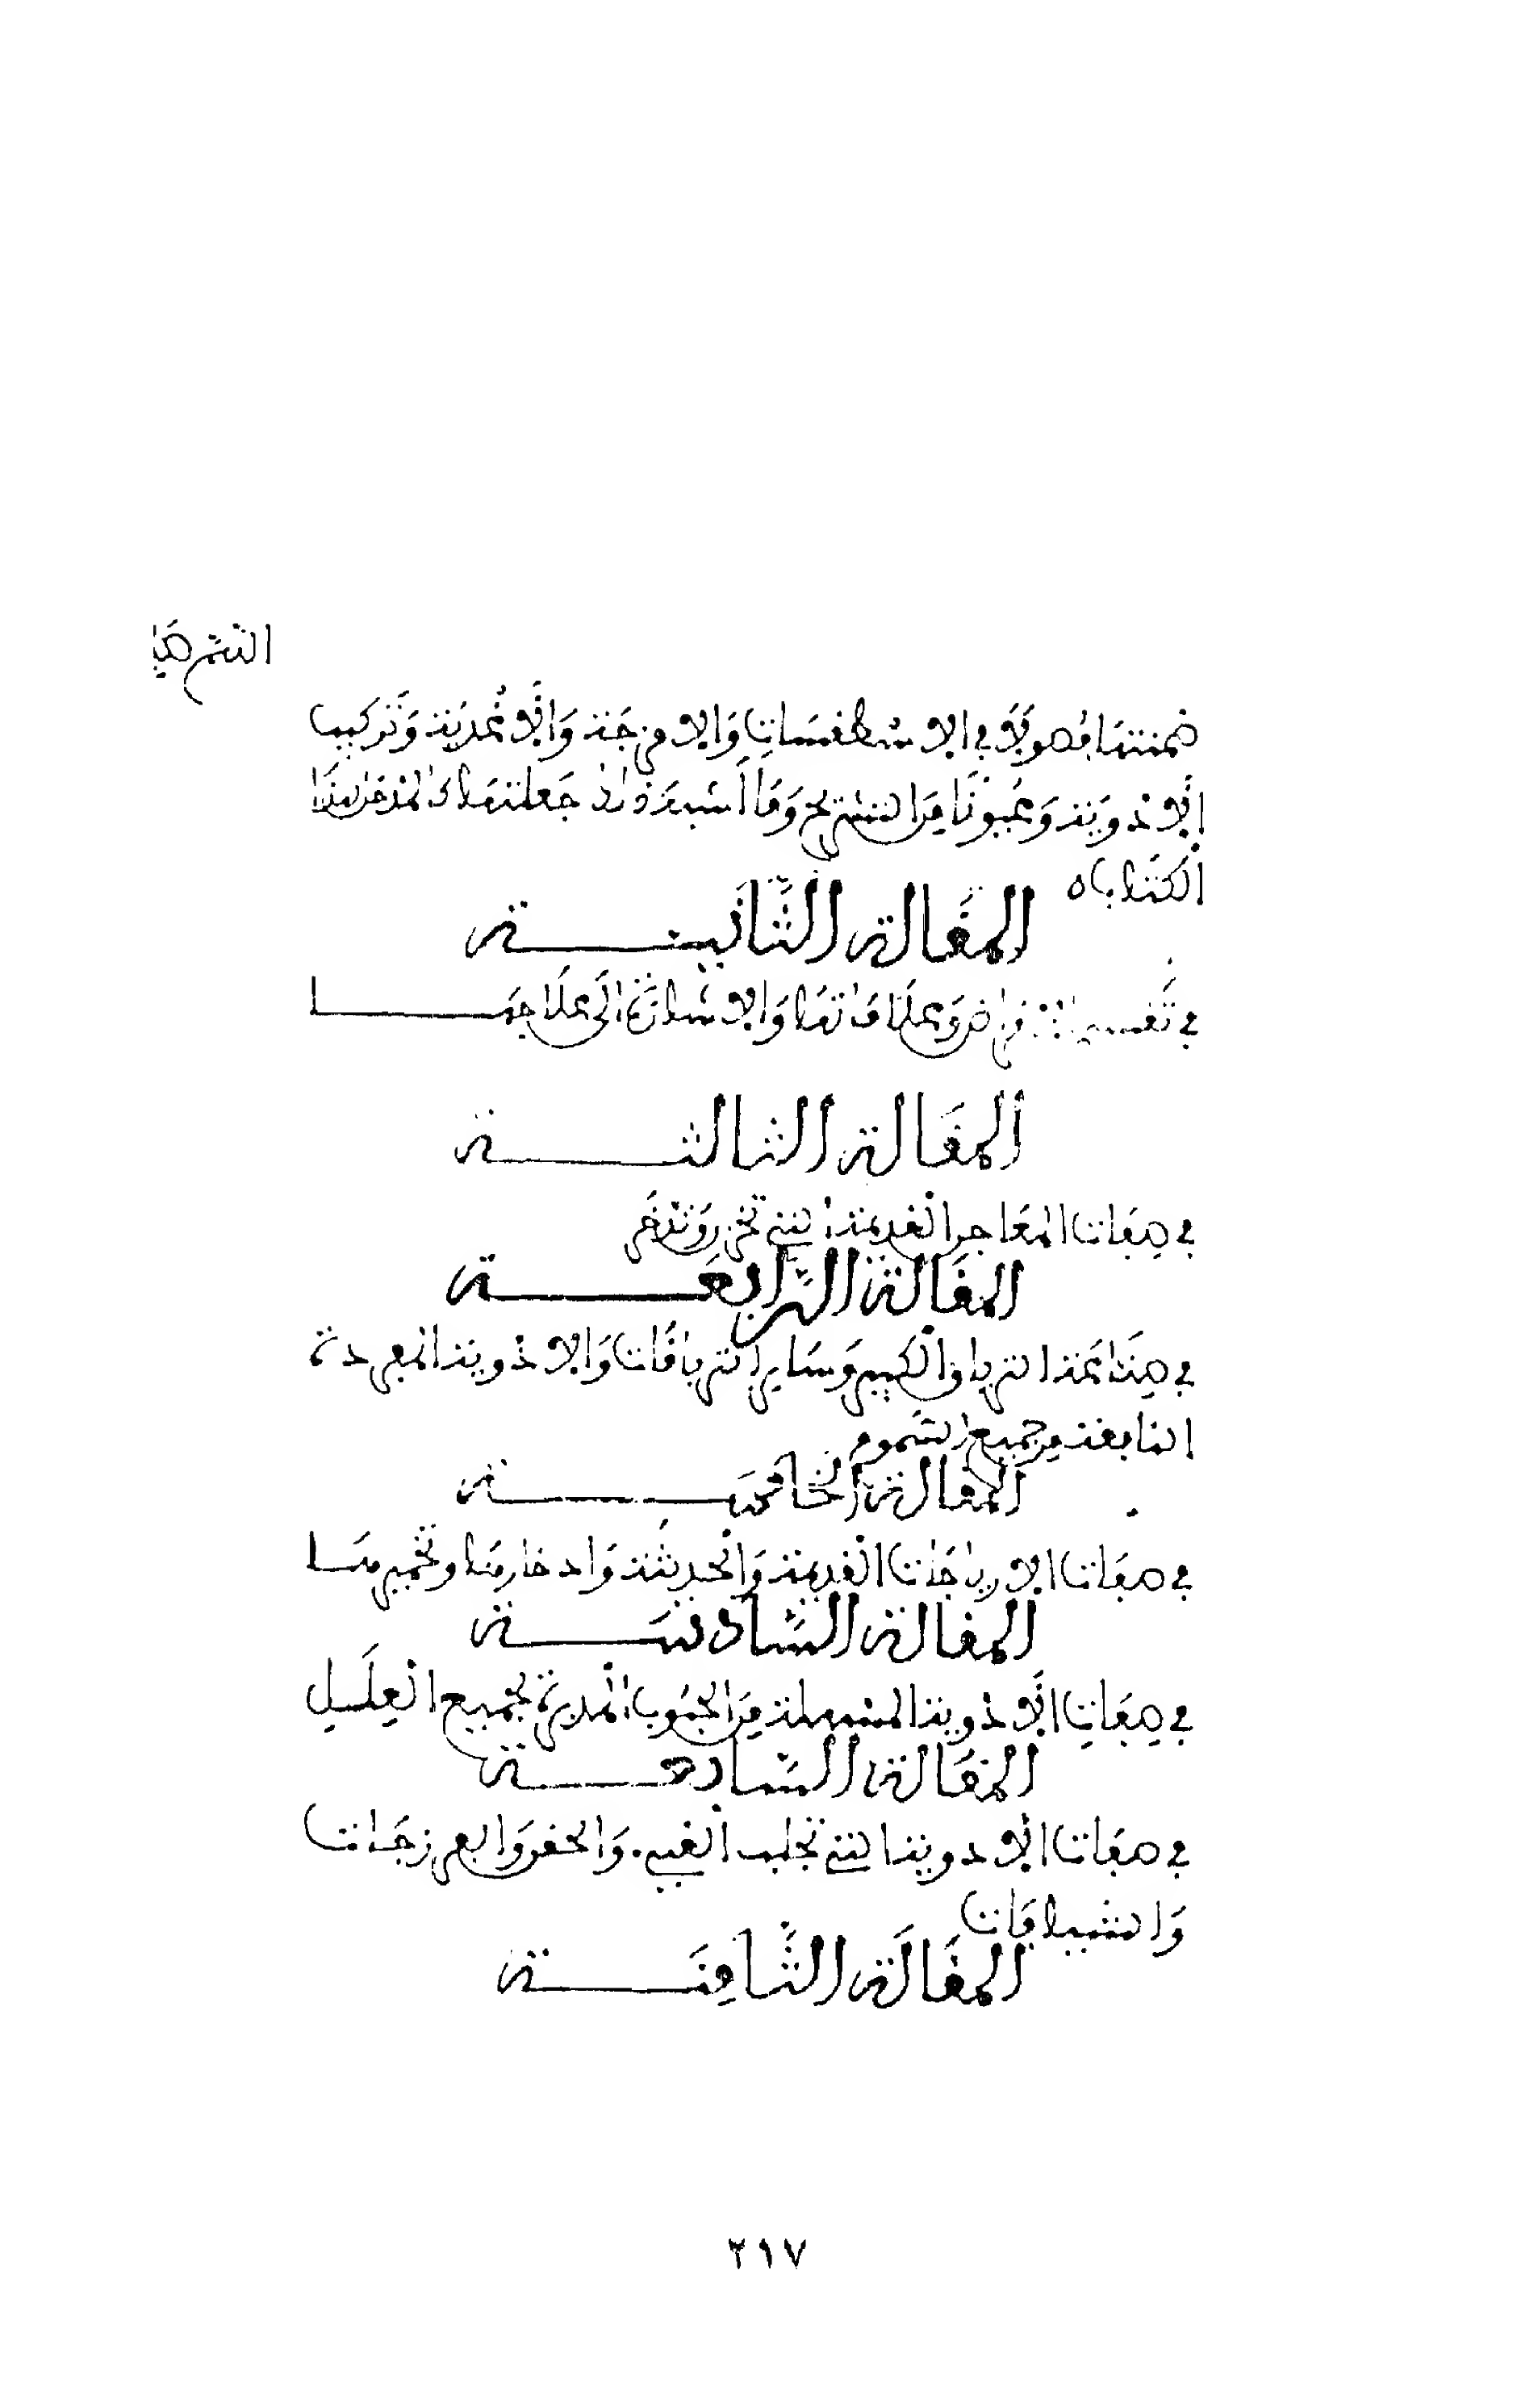 ضمنتها فصولا في الاسطقسات والامزجة والاغذية وتركيب
الادوية وعيونا من التشريح وما أشبه ذلك جعلتها كالمدخل لهذا
الكتاب ه
المقالة الثانية
في تقسيم الامراض وعلاماتها والاشارة الى علاجها
المقالة الثالثة
في صفات المعاجن القديمة التي تخزن وتدخر
المقالة الرابعة
في صناعة الترياق الكبير وساير الترياقات والادوية المفردة
النافعة من جميع السموم
المقالة الخامسة
في صفات الايارجات القديمة والحديثة وادخارها وتخميرها
المقالة السادسة
في صفات الادوية المسهلة من الحبوب المدبرة لجميع العلل
المقالة السابعة
في صفات الادوية التي تجلب القيء والحقن والفرزجات
والشيافات
المقالة الثامنة
٢١٧